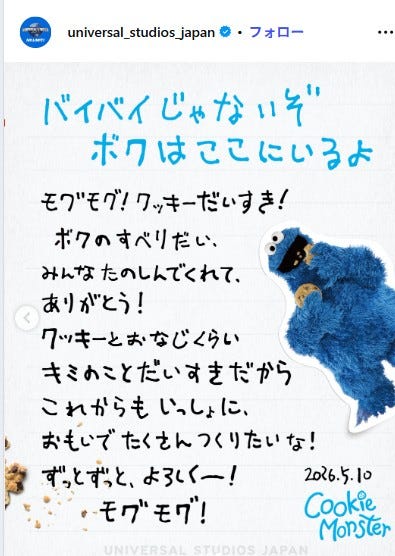 universal_studios_japan • フォロー
バイバイじゃないぞ
ボクはここにいるよ
モグモグ！クッキーだいすき！
ボクのすべりだい、
みんなたのしんでくれて、
ありがとう！
クッキーとおなじくらい
キミのことだいすきだから
これからもいっしょに、
おもいでたくさんつくりたいな！
ずっとずっと、よろしくー！
モグモグ！
2026.5.10
Cookie
Monster
UNIVERSAL STUDIOS JAPAN